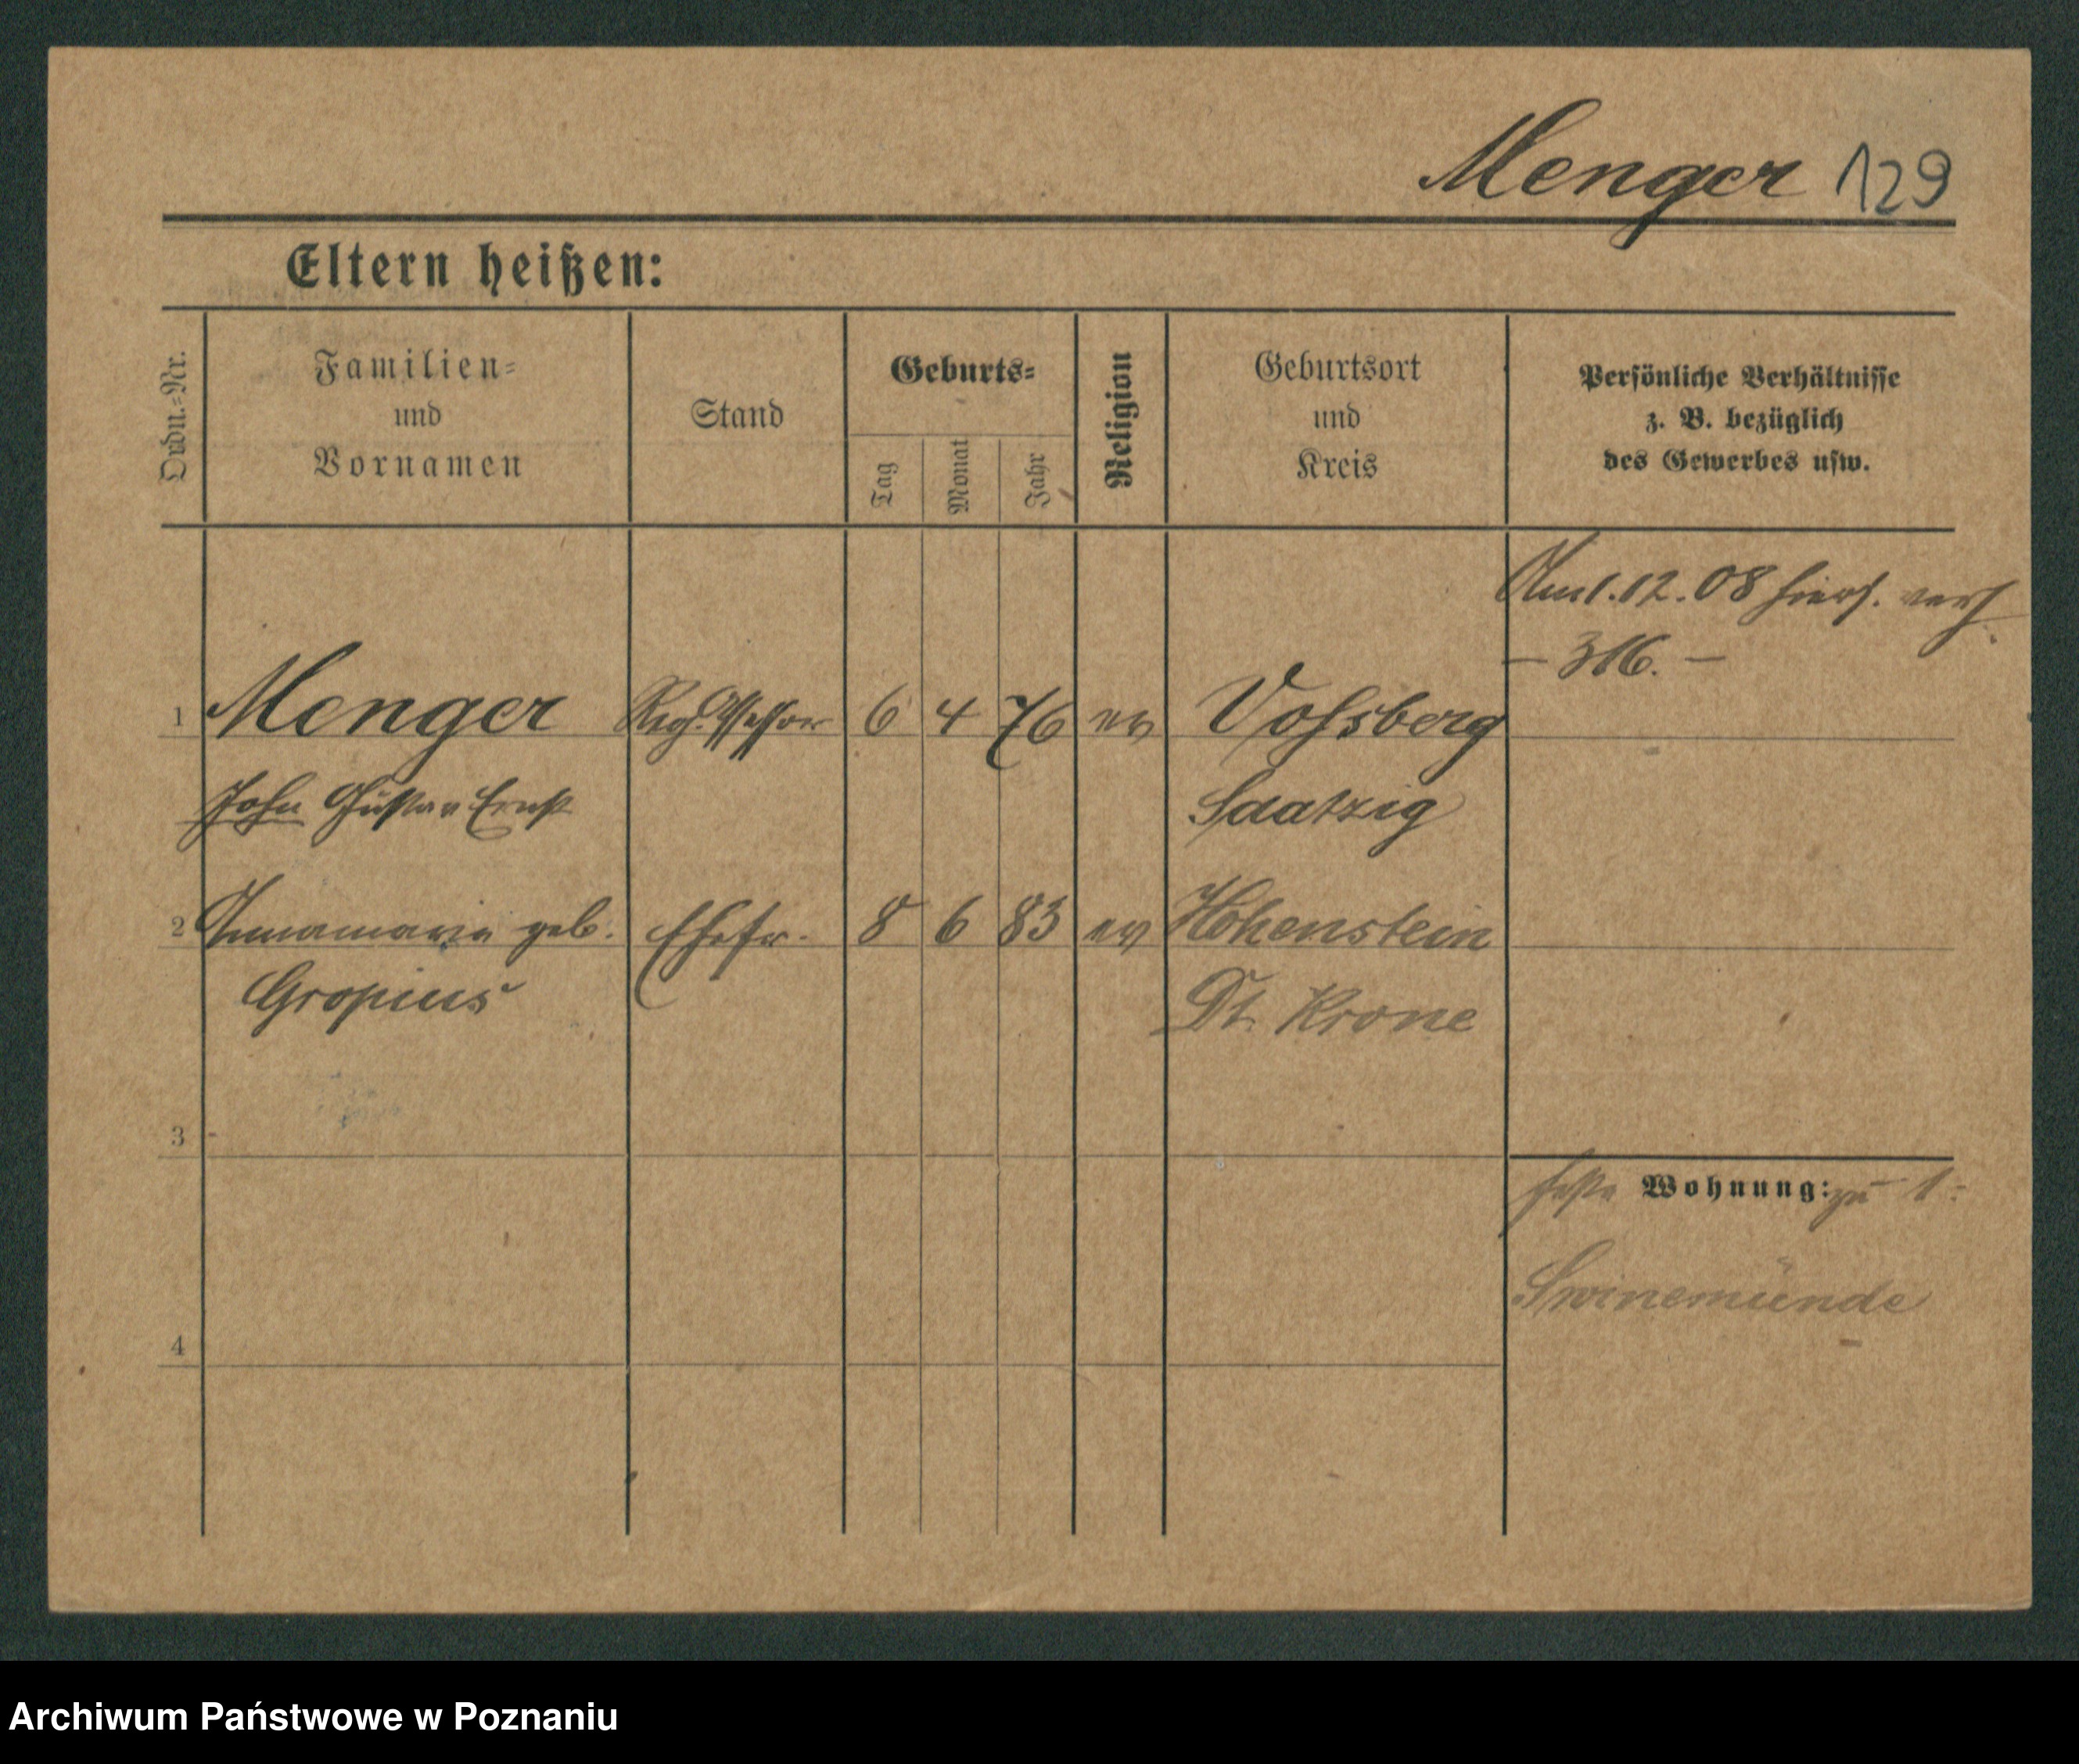 Menger 129
Eltern heißen:
Ordn.-Nr.
Familien-
und
Vornamen
Stand
Geburts-
Tag
Monat
Jahr
Religion
Geburtsort
und
Kreis
Persönliche Verhältnisse
z. B. bezüglich
des Gewerbes usw.
Am 1.12.08 hiers. verh.
– 316. –
1 Menger Reg. Assessor 6 4 76 ev Vossberg
John Gustav Ernst Saatzig
2 Annamarie geb. Ehefr. 8 6 83 ev Hohenstein
Gropius Dt. Krone
3
feste Wohnung: zu 1:
Swinemünde
4
Archiwum Państwowe w Poznaniu